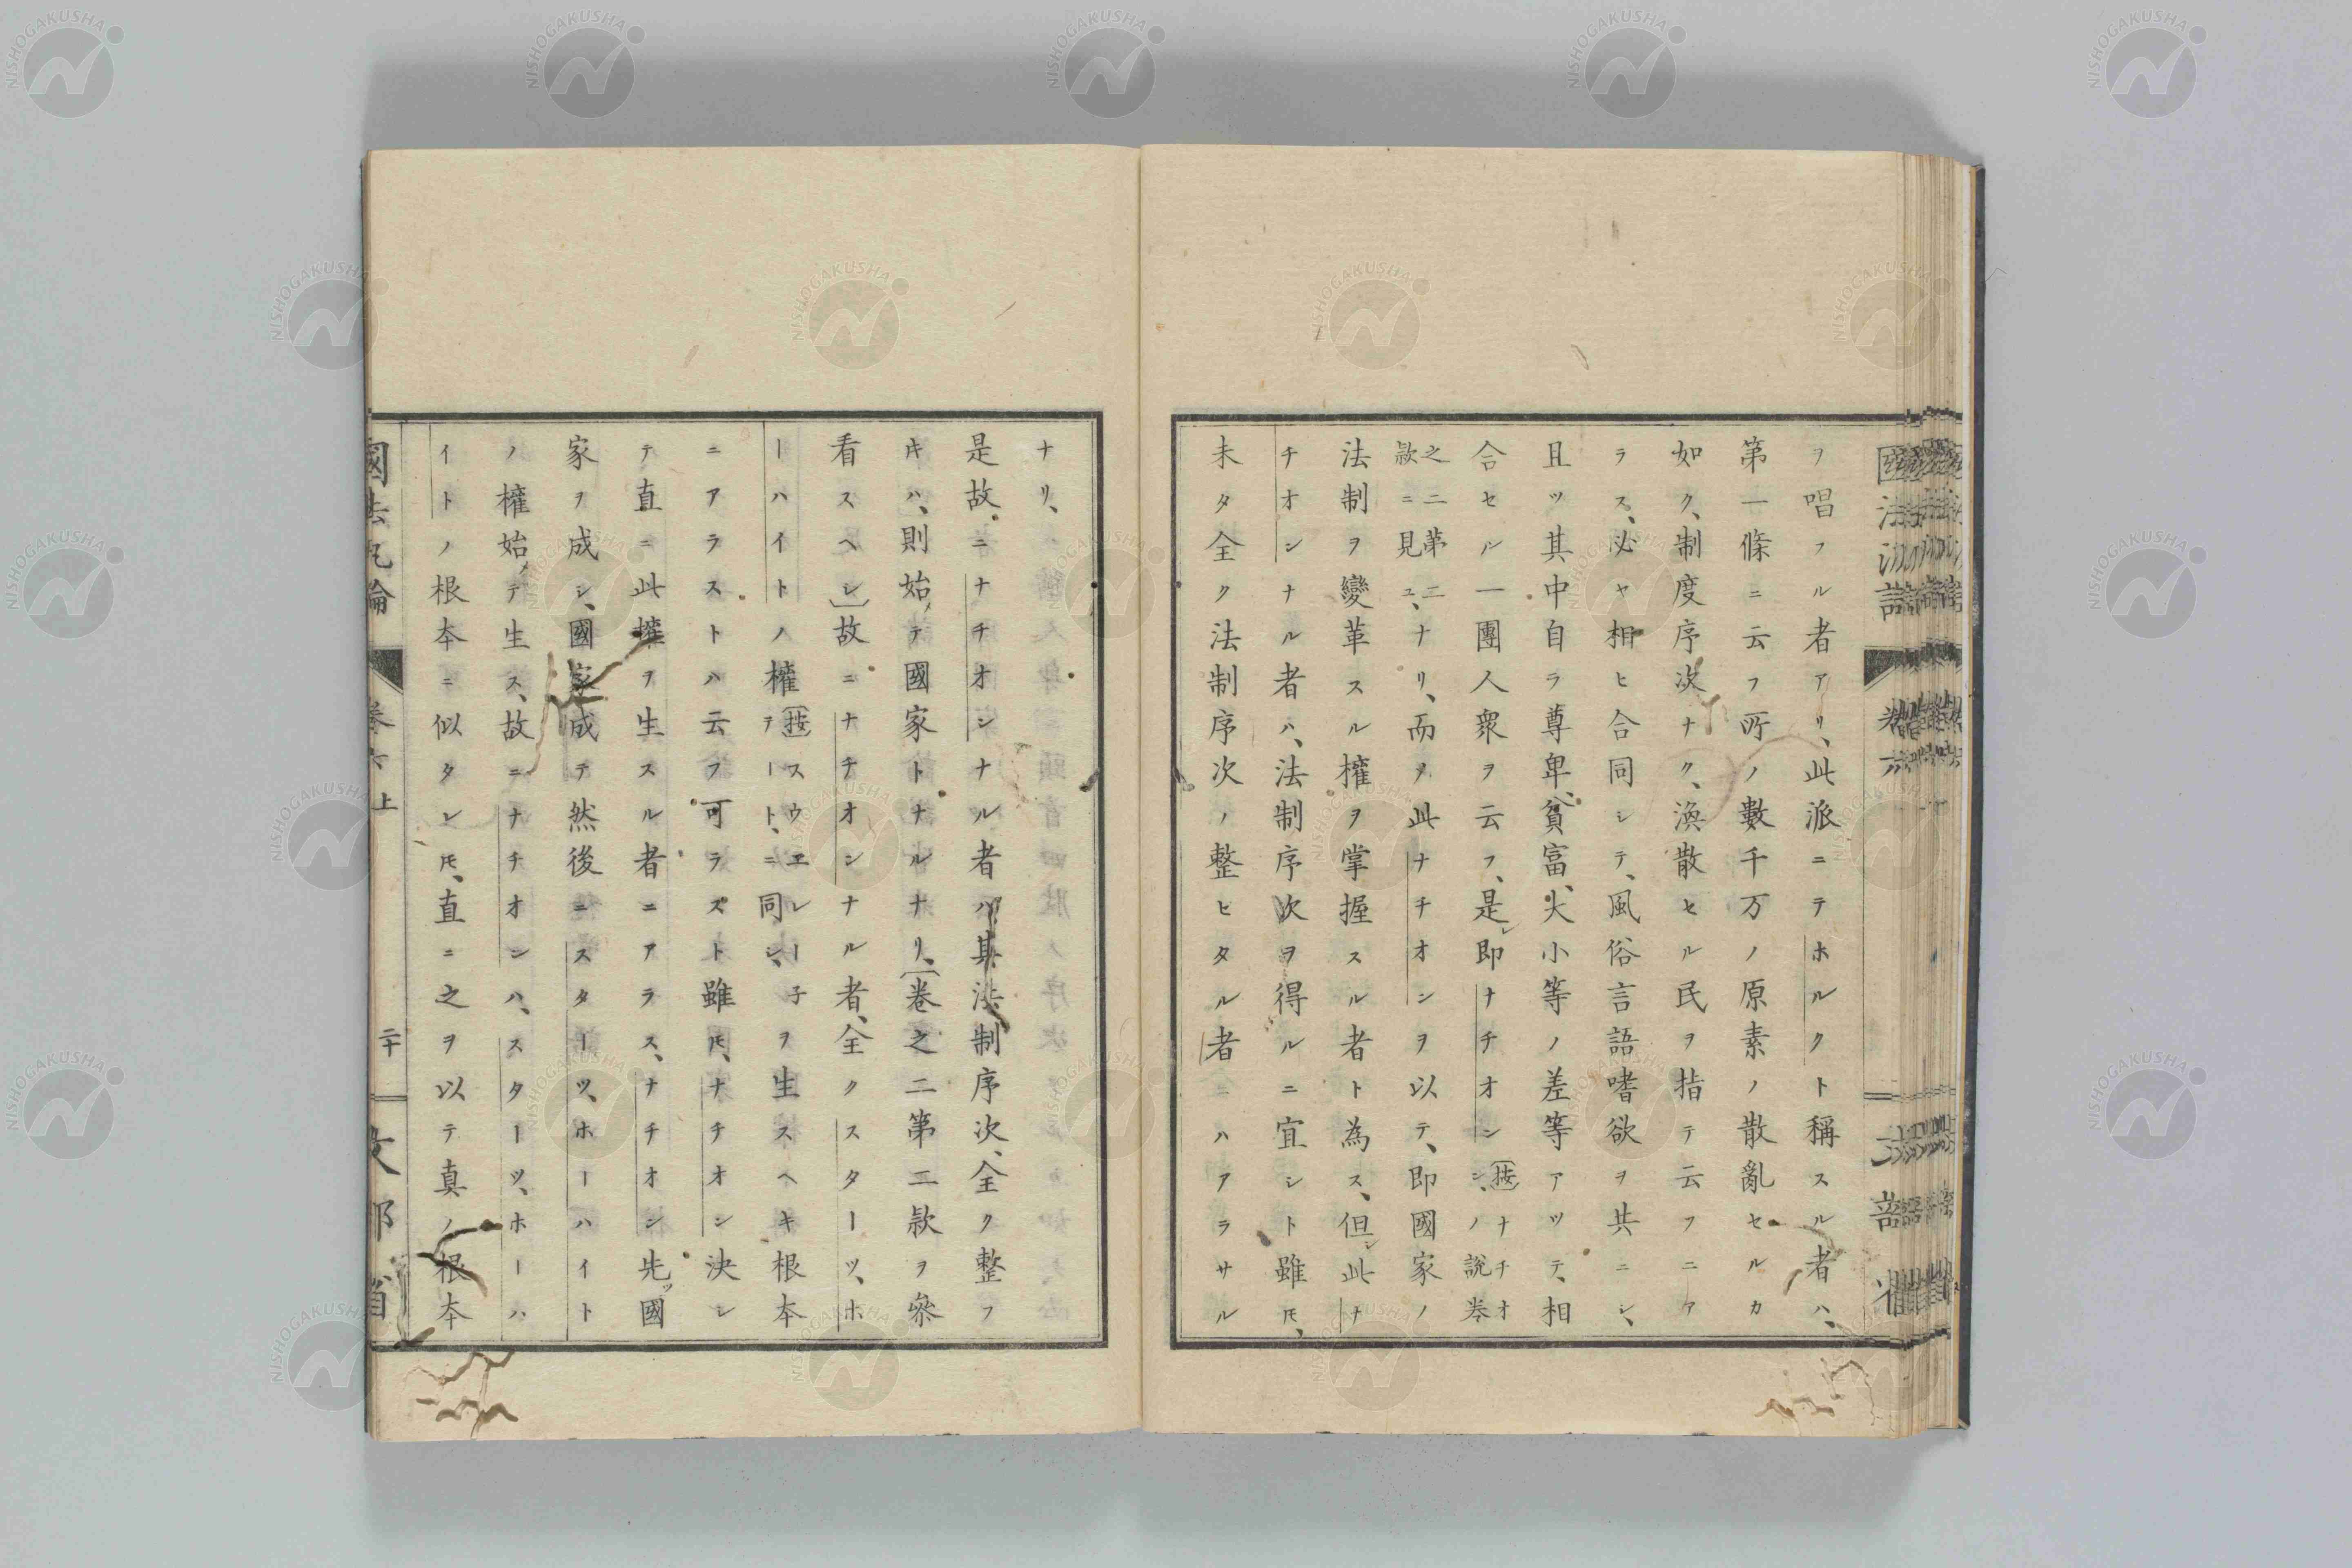 ヲ唱フル者アリ、此派ニテホルクト稱スル者ハ、
第一條ニ云フ所ノ數千万ノ原素ノ散亂セルカ
如ク、制度序次ナク、渙散セル民ヲ指テ云フニア
ラス、必ヤ相ヒ合同シテ、風俗言語嗜欲ヲ共ニシ、
且ツ其中自ラ尊卑、貧富、大小等ノ差等アツテ、相
合セル一團人衆ヲ云フ、是レ即ナチオン〔按〕ナチオンノ說卷
之二第二款ニ見ユ、ナリ、而ヲ此ナチオンヲ以テ、即國家ノ
法制ヲ變革スル權ヲ掌握スル者ト為ス、但シ此ナ
チオンナル者ハ、法制序次ヲ得ルニ宜シト雖𪜈、
未タ全ク法制序次ノ整ヒタル者ニハアラサル
ナリ、
是故ニナチオンナル者ハ其法制序次、全ク整フ
𪜈ハ、則始メテ國家トナルナリ、〔卷之二第二款ヲ參
看スヘシ〕故ニナチオンナル者、全クスターツ、ホ
ーハイトノ權〔按〕スウエレーンテート、ニ同シ、子ヲ生スヘキ根本
ニアラストハ云フ可ラズト雖𪜈、ナチオン決シ
テ直ニ此權ヲ生スル者ニアラス、ナチオン先ツ國
家ヲ成シ、國家成テ然後ニスターツ、ホーハイト
ノ權始メテ生ス、故ニナチオンハ、スターツ、ホーハ
イトノ根本ニ似タレ𪜈、直ニ之ヲ以テ真ノ根本
國法汎論
卷六上
二十
文部省
NISHOGAKUSHA